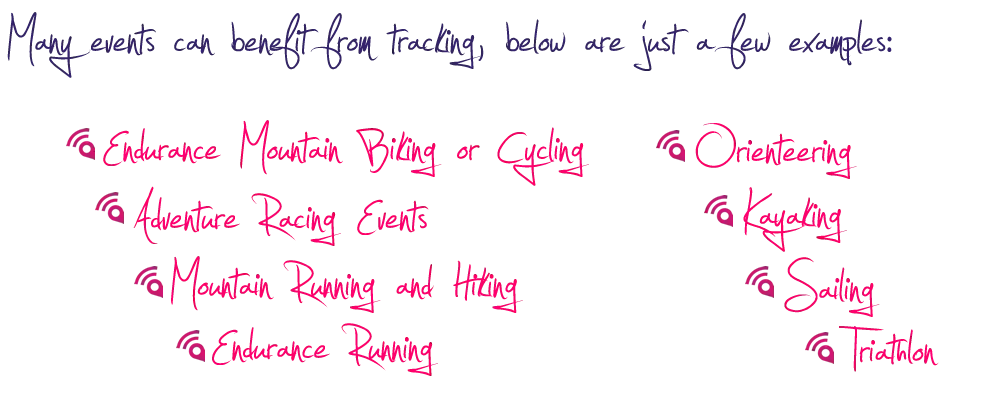 Many events can benefit from tracking, below are just a few examples:
Endurance Mountain Biking or Cycling
Adventure Racing Events
Mountain Running and Hiking
Endurance Running
Orienteering
Kayaking
Sailing
Triathlon